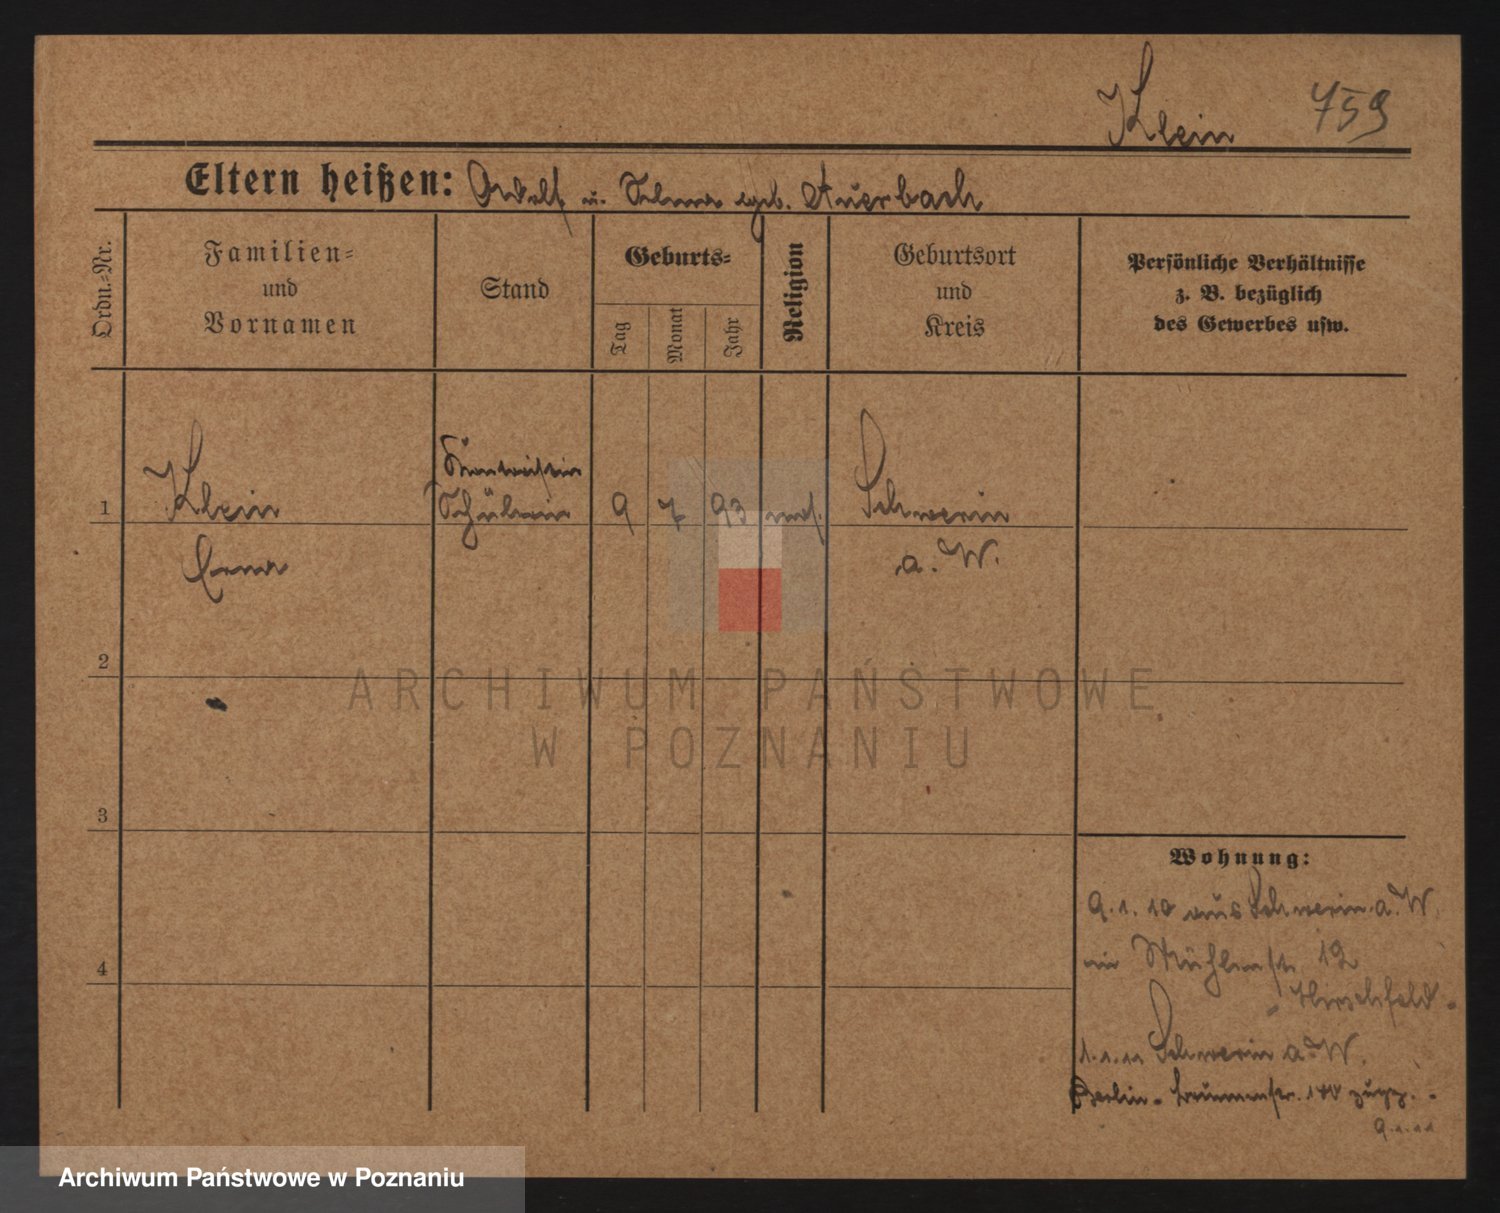 Klein 759
Eltern heißen: Adolf u. Selma geb. Auerbach
Ordn.=Nr.
Familien=
und
Vornamen
Stand
Geburts=
Tag
Monat
Jahr
Religion
Geburtsort
und
Kreis
Persönliche Verhältnisse
z. B. bezüglich
des Gewerbes usw.
Kontoristin
1 Klein Schülerin 9 7 93 mos. Schwerin
Erna a. W.
2
3
4
Wohnung:
9.1.10 aus Schwerin a. W.
in Mühlenstr. 12
- Hirschfeld -
1.1.11 Schwerin a. W.
Berlin - Brunnenstr. 140 zugz. -
9.1.11
ARCHIWUM PAŃSTWOWE
W POZNANIU
Archiwum Państwowe w Poznaniu